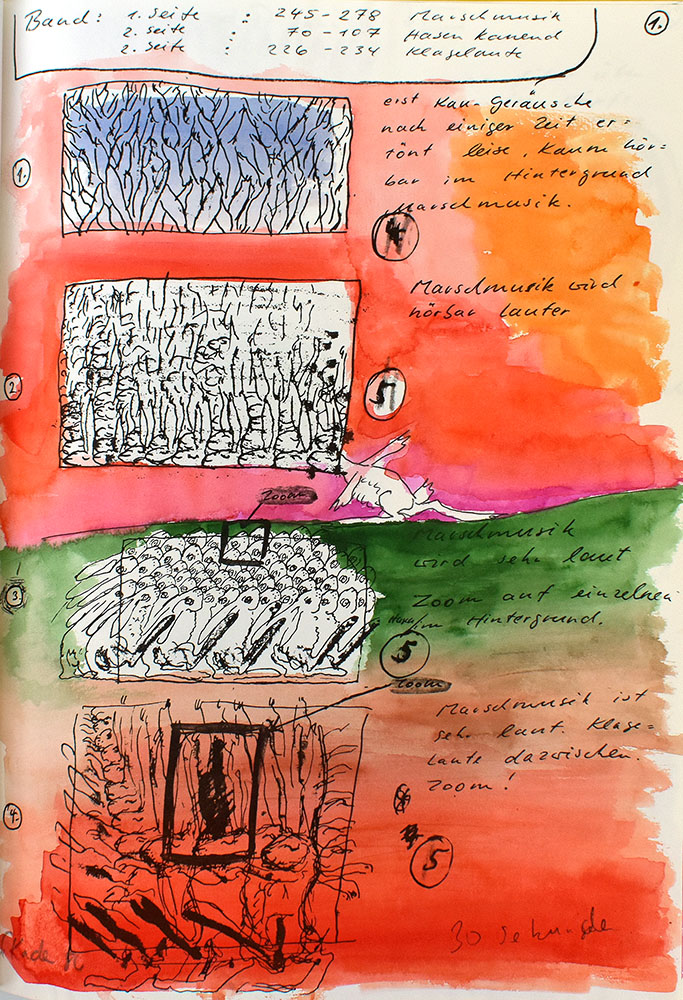 Band: 1. Seite : 245-278 Marschmusik
2. Seite : 70-107 Hasen kauend
2. Seite : 226-234 Klagelaute
1.
erst Kau-Geräusche
nach einiger Zeit er=
tönt leise, Kaum hör=
bar im Hintergrund
Marschmusik.
1.
4
Marschmusik wird
hörbar lauter
2
5
Zoom
Marschmusik
wird sehr laut
3
Zoom auf einzelnen
im Hintergrund.
5
Zoom
Marschmusik ist
sehr laut. Klage=
laute dazwischen.
Zoom!
4.
5
30 Sekunden